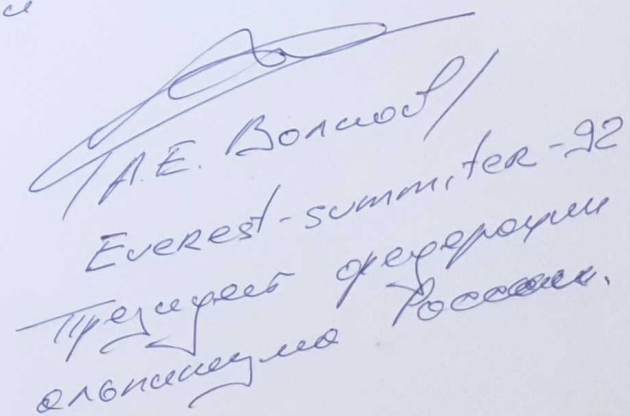 /А.Е. Волков/
Everest-summiter-92
Президент федерации
альпинизма России.